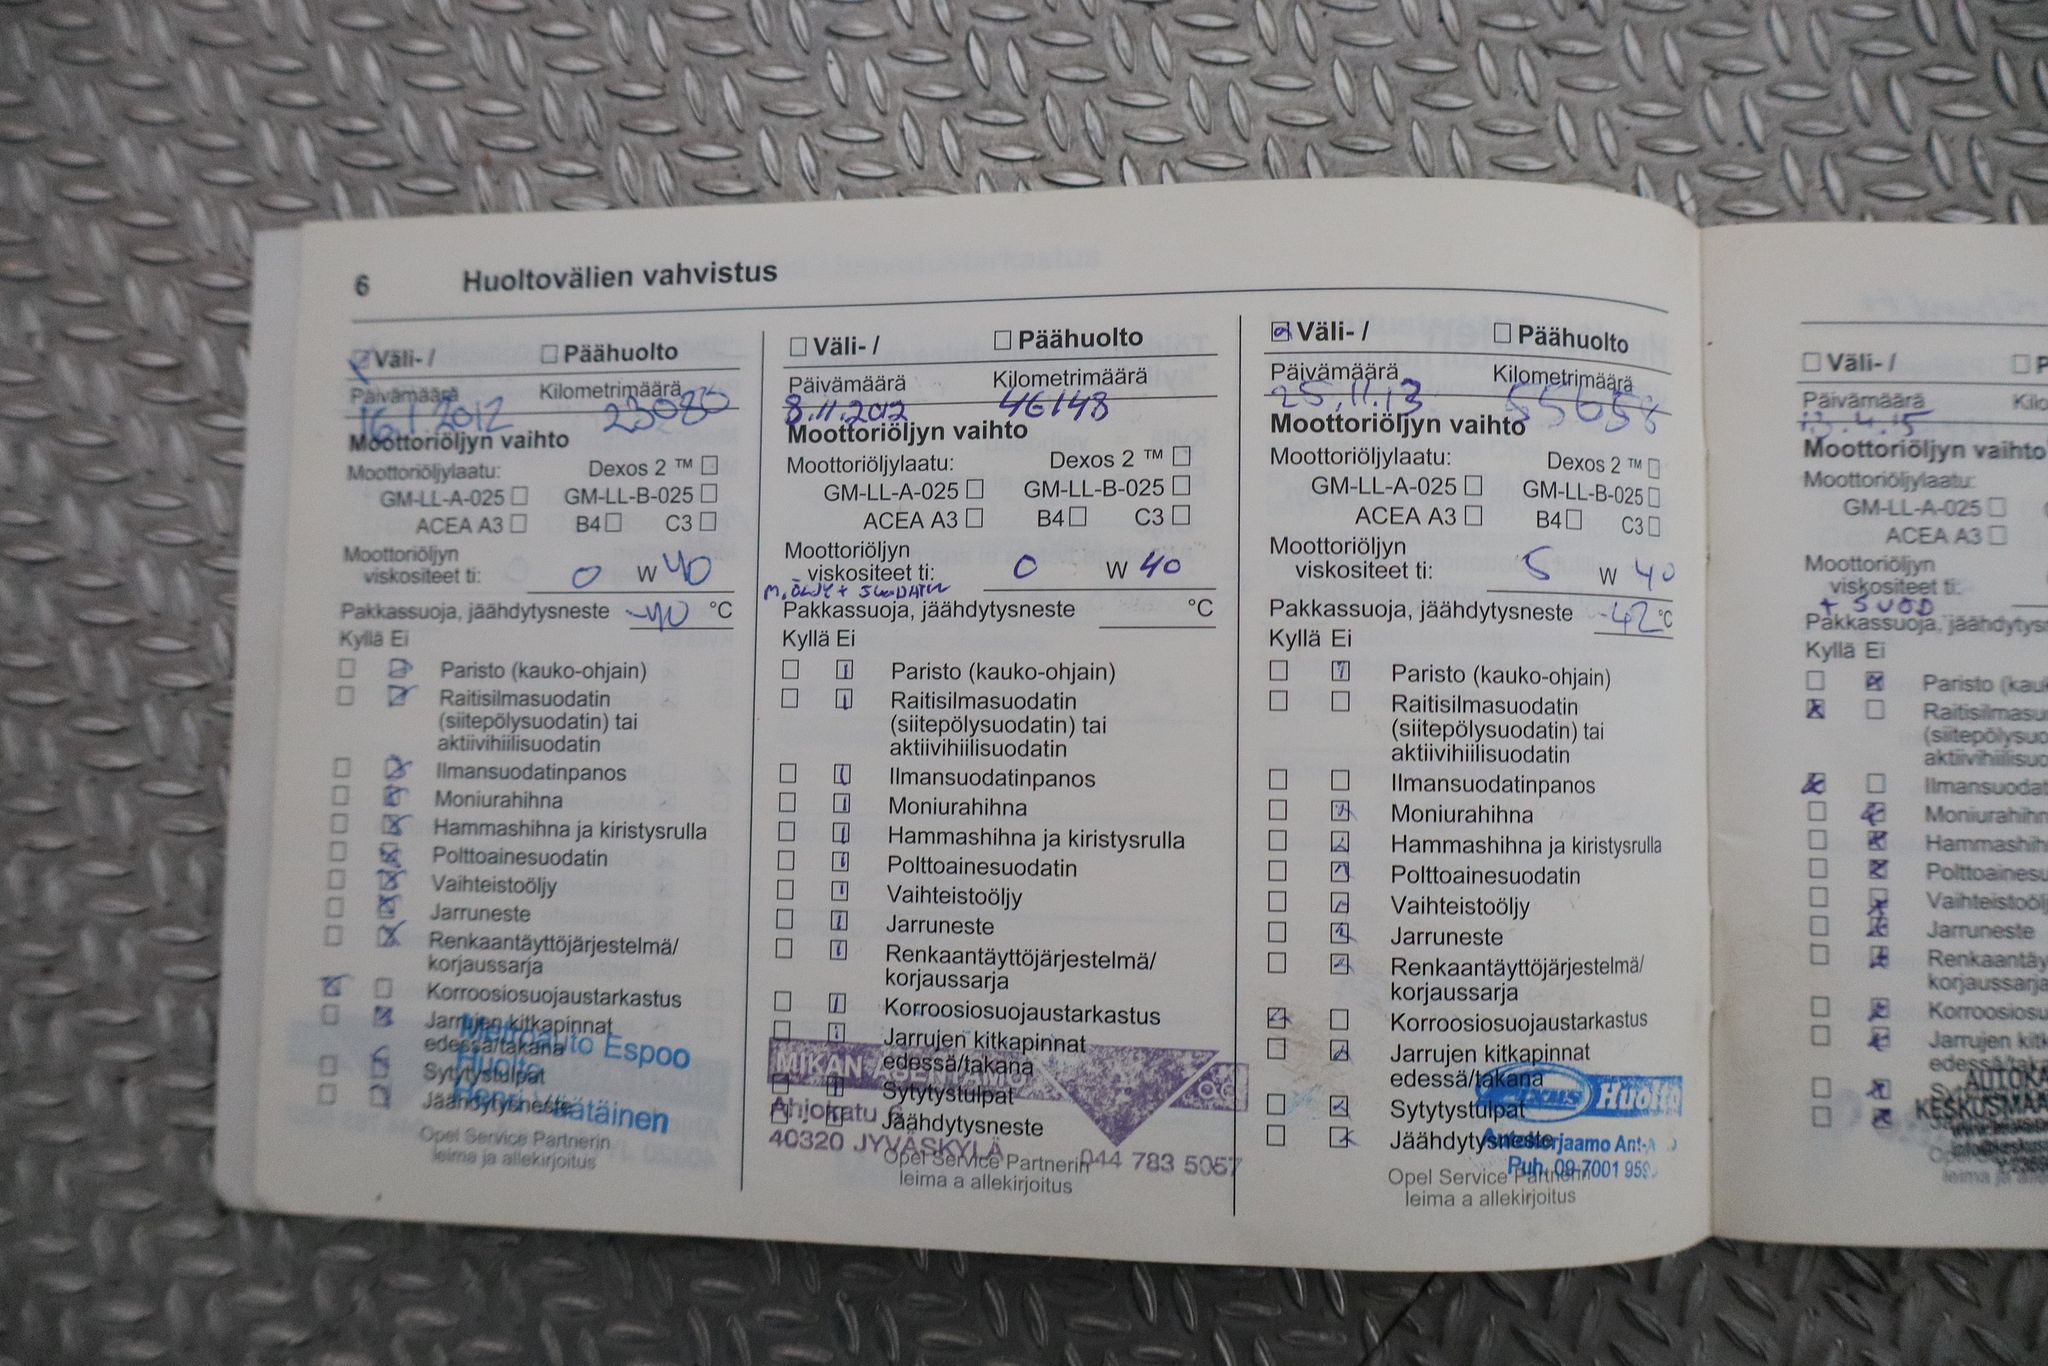 6 Huoltovälien vahvistus
Väli- / Päähuolto
Päivämäärä Kilometrimäärä
16.1.2012 23080
Moottoriöljyn vaihto
Moottoriöljylaatu: Dexos 2 ™
GM-LL-A-025 GM-LL-B-025
ACEA A3 B4 C3
Moottoriöljyn
viskositeet ti: 0 W 40
Pakkassuoja, jäähdytysneste -40 °C
Kyllä Ei
Paristo (kauko-ohjain)
Raitisilmasuodatin
(siitepölysuodatin) tai
aktiivihiilisuodatin
Ilmansuodatinpanos
Moniurahihna
Hammashihna ja kiristysrulla
Polttoainesuodatin
Vaihteistoöljy
Jarruneste
Renkaantäyttöjärjestelmä/
korjaussarja
Korroosiosuojaustarkastus
Jarrujen kitkapinnat
edessä/takana
Sytytystulpat
Jäähdytysneste
Metroauto Espoo
Huolto
Henri Väätäinen
Opel Service Partnerin
leima ja allekirjoitus
Väli- / Päähuolto
Päivämäärä Kilometrimäärä
8.11.2012 46148
Moottoriöljyn vaihto
Moottoriöljylaatu: Dexos 2 ™
GM-LL-A-025 GM-LL-B-025
ACEA A3 B4 C3
Moottoriöljyn
viskositeet ti: 0 W 40
M.ÖLJY + SUODATIN
Pakkassuoja, jäähdytysneste °C
Kyllä Ei
Paristo (kauko-ohjain)
Raitisilmasuodatin
(siitepölysuodatin) tai
aktiivihiilisuodatin
Ilmansuodatinpanos
Moniurahihna
Hammashihna ja kiristysrulla
Polttoainesuodatin
Vaihteistoöljy
Jarruneste
Renkaantäyttöjärjestelmä/
korjaussarja
Korroosiosuojaustarkastus
Jarrujen kitkapinnat
edessä/takana
Sytytystulpat
Jäähdytysneste
MIKAN ASENTAMO
Ahjokatu 6
40320 JYVÄSKYLÄ 044 783 5057
Opel Service Partnerin
leima a allekirjoitus
Väli- / Päähuolto
Päivämäärä Kilometrimäärä
25.11.13 55658
Moottoriöljyn vaihto
Moottoriöljylaatu: Dexos 2 ™
GM-LL-A-025 GM-LL-B-025
ACEA A3 B4 C3
Moottoriöljyn
viskositeet ti: 5 W 40
Pakkassuoja, jäähdytysneste -42 °C
Kyllä Ei
Paristo (kauko-ohjain)
Raitisilmasuodatin
(siitepölysuodatin) tai
aktiivihiilisuodatin
Ilmansuodatinpanos
Moniurahihna
Hammashihna ja kiristysrulla
Polttoainesuodatin
Vaihteistoöljy
Jarruneste
Renkaantäyttöjärjestelmä/
korjaussarja
Korroosiosuojaustarkastus
Jarrujen kitkapinnat
edessä/takana
Sytytystulpat
Jäähdytysneste
Huolto
Puh. 09-7001
Opel Service Partnerin
leima a allekirjoitus
Väli- /
Päivämäärä
13.4.15
Moottoriöljyn vaihto
Moottoriöljylaatu:
GM-LL-A-025
ACEA A3
Moottoriöljyn
viskositeet ti:
+ SUOD
Pakkassuoja,
Kyllä Ei
Paristo
Jarruneste